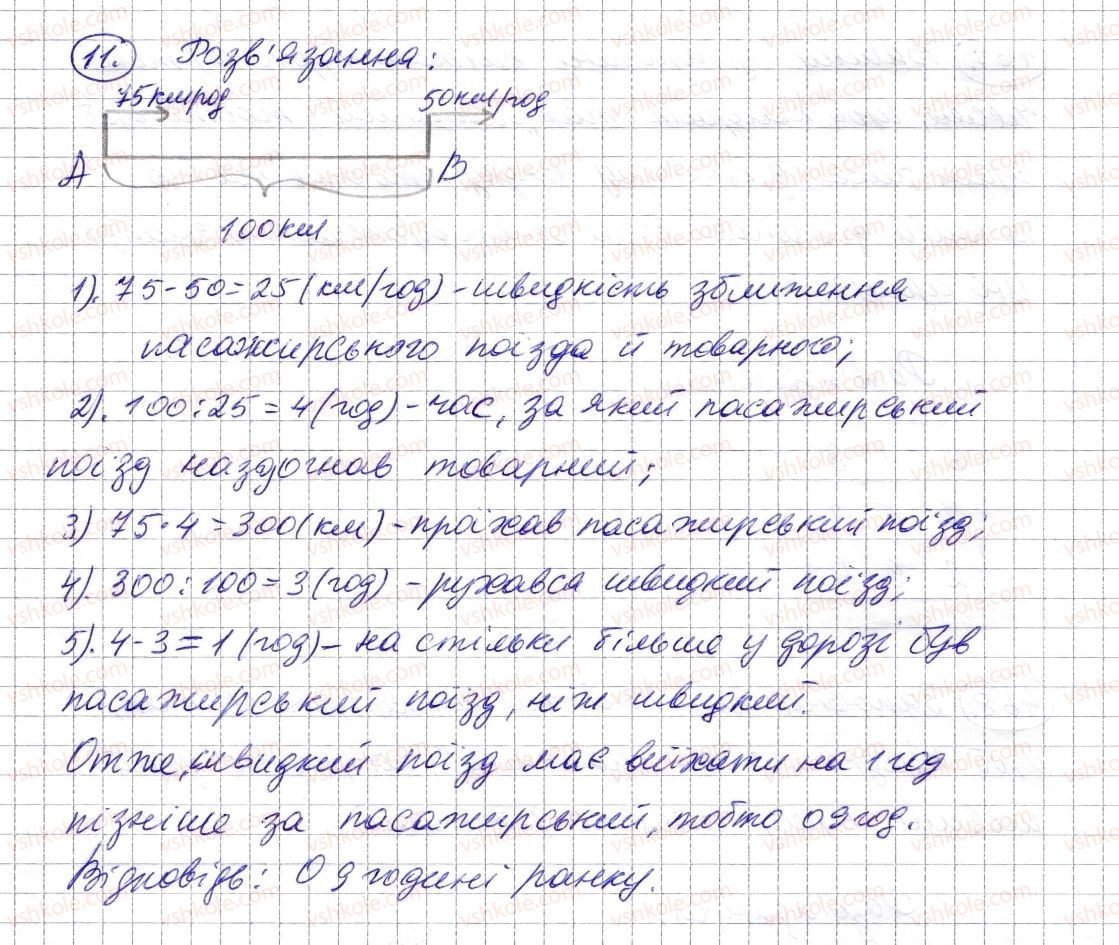 11. Розв'язання:
75км/год 50км/год
А В
100км
1). 75-50=25(км/год)-швидкість зближення
пасажирського поїзда й товарного;
2). 100:25=4(год)-час, за який пасажирський
поїзд наздогнав товарний;
3) 75·4=300(км)-проїхав пасажирський поїзд;
4). 300:100=3(год)-рухався швидкий поїзд;
5). 4-3=1(год)-на стільки більше у дорозі був
пасажирський поїзд, ніж швидкий.
Отже, швидкий поїзд має виїхати на 1 год
пізніше за пасажирський, тобто о 9 год.
Відповідь: О 9 годині ранку.
vshkole.com